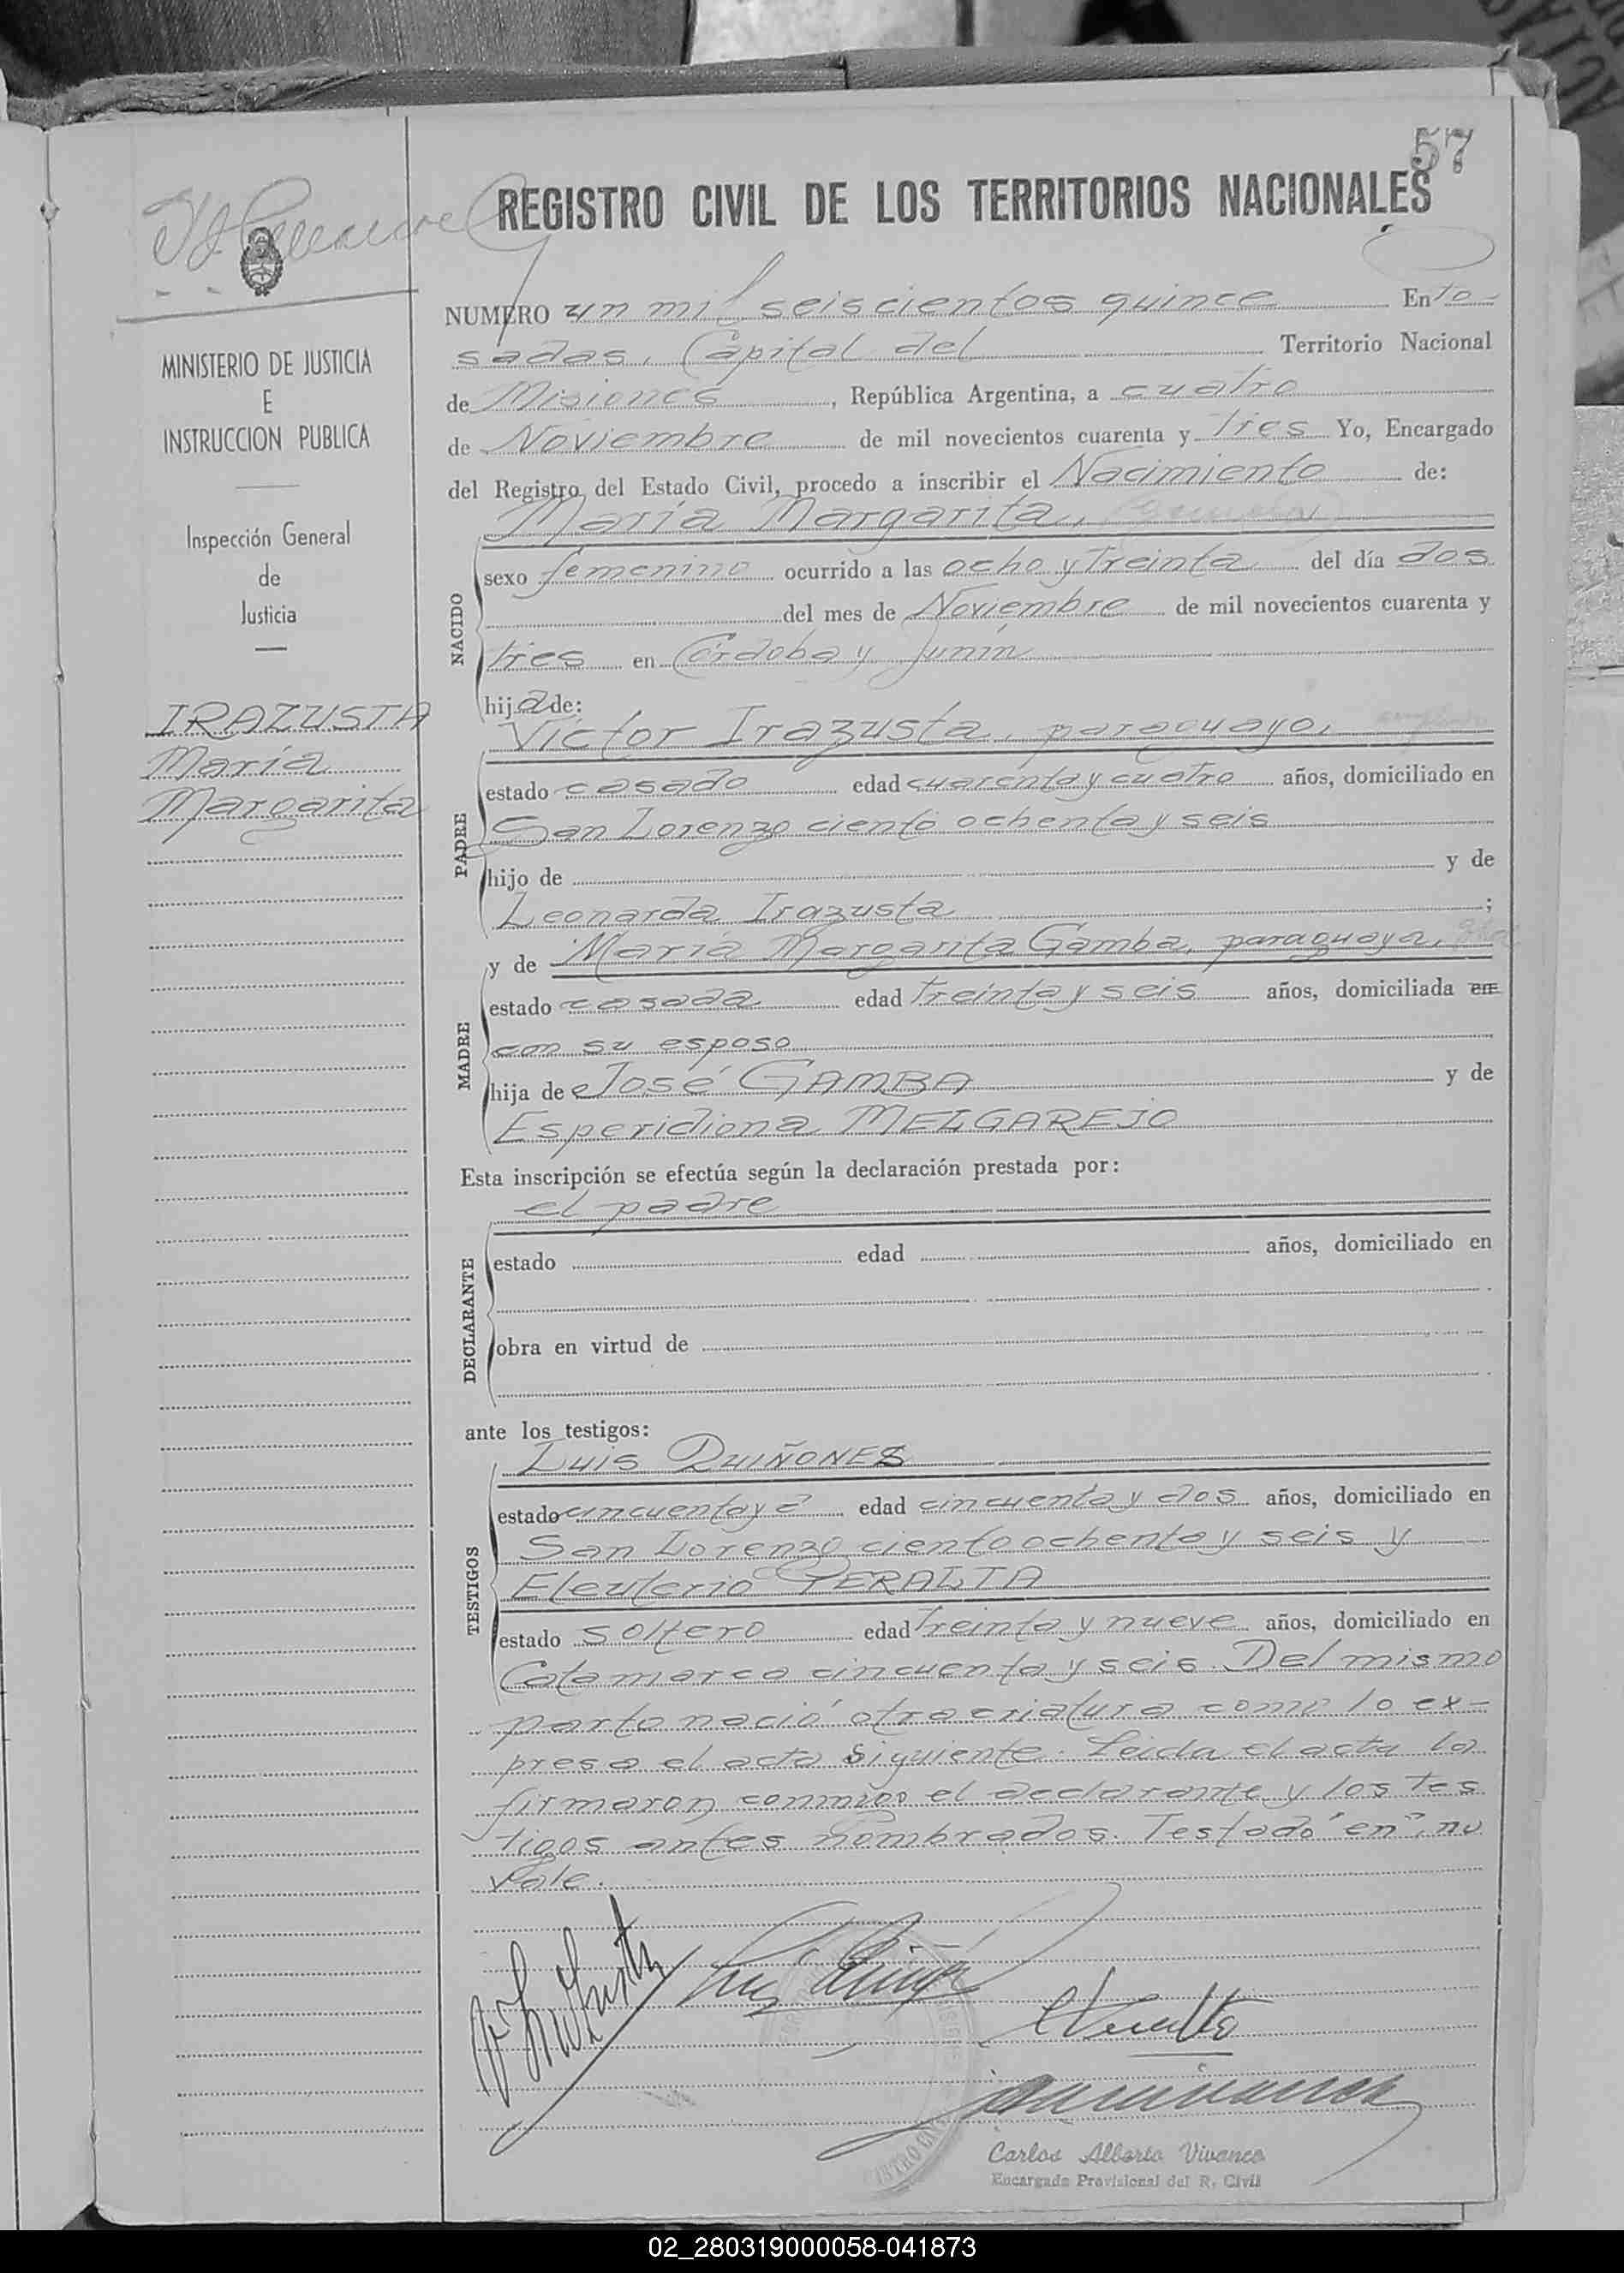 57
REGISTRO CIVIL DE LOS TERRITORIOS NACIONALES
NUMERO un mil seiscientos quince En Po-
sadas, Capital del Territorio Nacional
de Misiones, República Argentina, a cuatro
de Noviembre de mil novecientos cuarenta y tres Yo, Encargado
del Registro del Estado Civil, procedo a inscribir el Nacimiento de:
María Margarita,
NACIDO
sexo femenino ocurrido a las ocho y treinta del día dos
del mes de Noviembre de mil novecientos cuarenta y
tres en Córdoba y Junín
hija de:
Víctor Irazusta, paraguayo,
PADRE
estado casado edad cuarenta y cuatro años, domiciliado en
San Lorenzo ciento ochenta y seis
hijo de y de
Leonarda Irazusta ;
y de María Margarita Gamba, paraguaya,
MADRE
estado casada edad treinta y seis años, domiciliada en
con su esposo
hija de José GAMBA y de
Esperidiona MELGAREJO
Esta inscripción se efectúa según la declaración prestada por:
el padre
DECLARANTE
estado edad años, domiciliado en
obra en virtud de
ante los testigos:
Luis QUIÑONES
TESTIGOS
estado cincuenta y c edad cincuenta y dos años, domiciliado en
San Lorenzo ciento ochenta y seis y
Eleuterio PERALTA
estado soltero edad treinta y nueve años, domiciliado en
Catamarca cincuenta y seis. Del mismo
parto nació otra criatura como lo ex-
presa el acta siguiente. Leida el acta la
firmaron conmigo el declarante y los tes
tigos antes nombrados. Testado "en", no
vale.
Carlos Alberto Vivanco
Encargado Provisional del R. Civil
MINISTERIO DE JUSTICIA
E
INSTRUCCION PUBLICA
Inspección General
de
Justicia
IRAZUSTA
María
Margarita
02_280319000058-041873